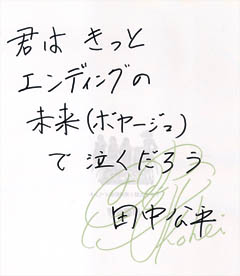 君は きっと
エンディングの
未来(ボヤージュ)
で 泣くだろう
田中公平
Kohei